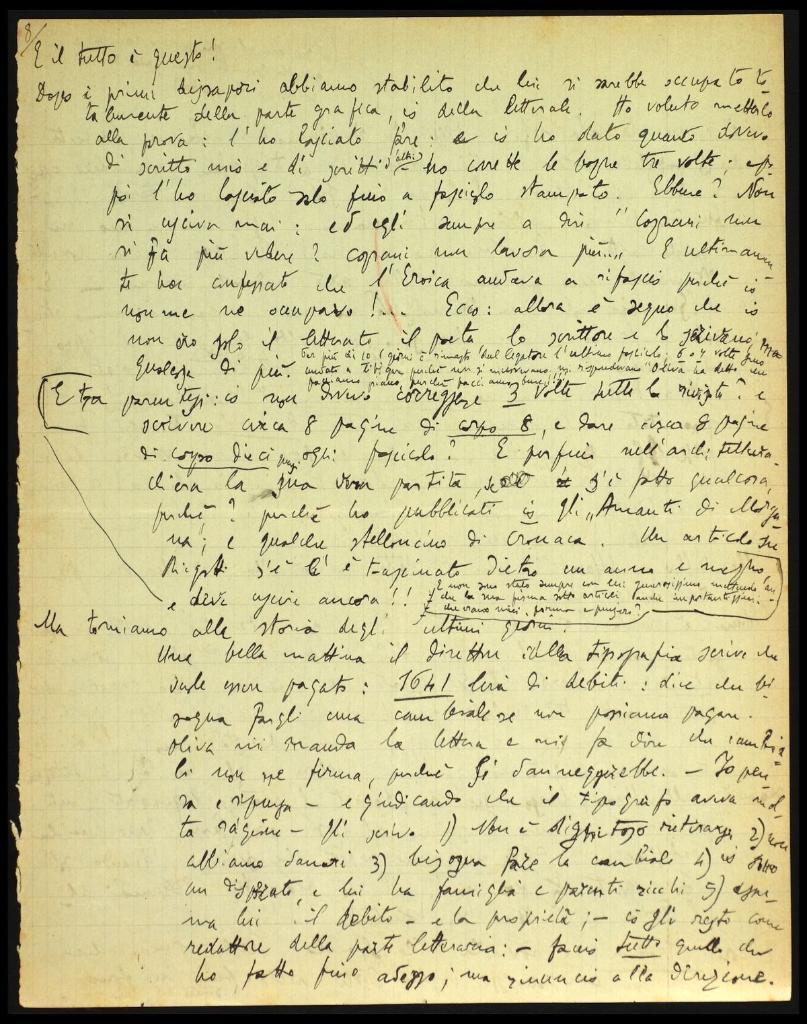 8/
E il tutto è questo!
Dopo i primi dissapori abbiamo stabilito che lui si sarebbe occupato to-
talmente della parte grafica, io della letteraria. Ho voluto metterlo
alla prova: l'ho lasciato fare: io ho dato quanto dovevo
di scritto mio e di scritti d'altri – ho corrette le bozze tre volte; e
poi l'ho lasciato solo fino a fascicolo stampato. Ebbene? Non
si usciva mai: ed egli sempre a dire "Cozzani non
si fa più vedere? Cozzani non lavora più.... E ultimamen-
te ha confessato che l'Eroica andava a rifascio perchè io
non me ne occupavo!... Ecco: allora è segno che io
non ero solo il letterato il poeta lo scrittore e lo scrivano, ma
qualcosa di più. Per più di 10 giorni è rimasto dal legatore l'ultimo fascicolo; 6 o 7 volte sono
andato a perchè non si muovevano, mi rispondevano Oliva ha detto che
facciamo piano, perchè
E tra parentesi: io non dovevo correggere 3 volte tutta la rivista? e
scrivere circa 8 pagine di corpo 8, e dare circa 8 pagine
di corpo dieci ogni fascicolo? E perfino nell'architettura
c'era la sua dove partita, s'è fatto qualcosa,
perchè? perchè ho pubblicati io gli "Amanti di Morga-
na; e qualche stelloncino di Cronaca. Un articolo su
Rigotti s'è trascinato dietro un anno e mezzo
e deve uscire ancora!! E non sono stato sempre con lui generosissimo mettendo an-
che la sua firma sotto articoli anche importantissimi
che erano miei, forma e pensiero?
Ma torniamo alla storia degli ultimi giorni.
Una bella mattina il direttore della tipografia scrive che
vuole essere pagato: 1641 lire di debiti: dice che bi-
sogna fargli una cambiale se non possiamo pagare.
Oliva mi manda la lettera e mi fa dire che cambia-
li non ne firma, perchè si danneggerebbe. – Io pen-
sa e ripensa – e giudicando che il tipografo aveva mol-
ta ragione – gli scrivo 1) Non è dignitoso ritirarsi 2) non
abbiamo danari 3) bisogna fare la cambiale 4) io sono
un disperato, e lui ha famiglia e parenti ricchi 5) assu-
ma lui il debito – e la proprietà; – io gli resto come
redattore della parte letteraria: – faccio tutto quello che
ho fatto fino adesso; ma rinuncio alla direzione.